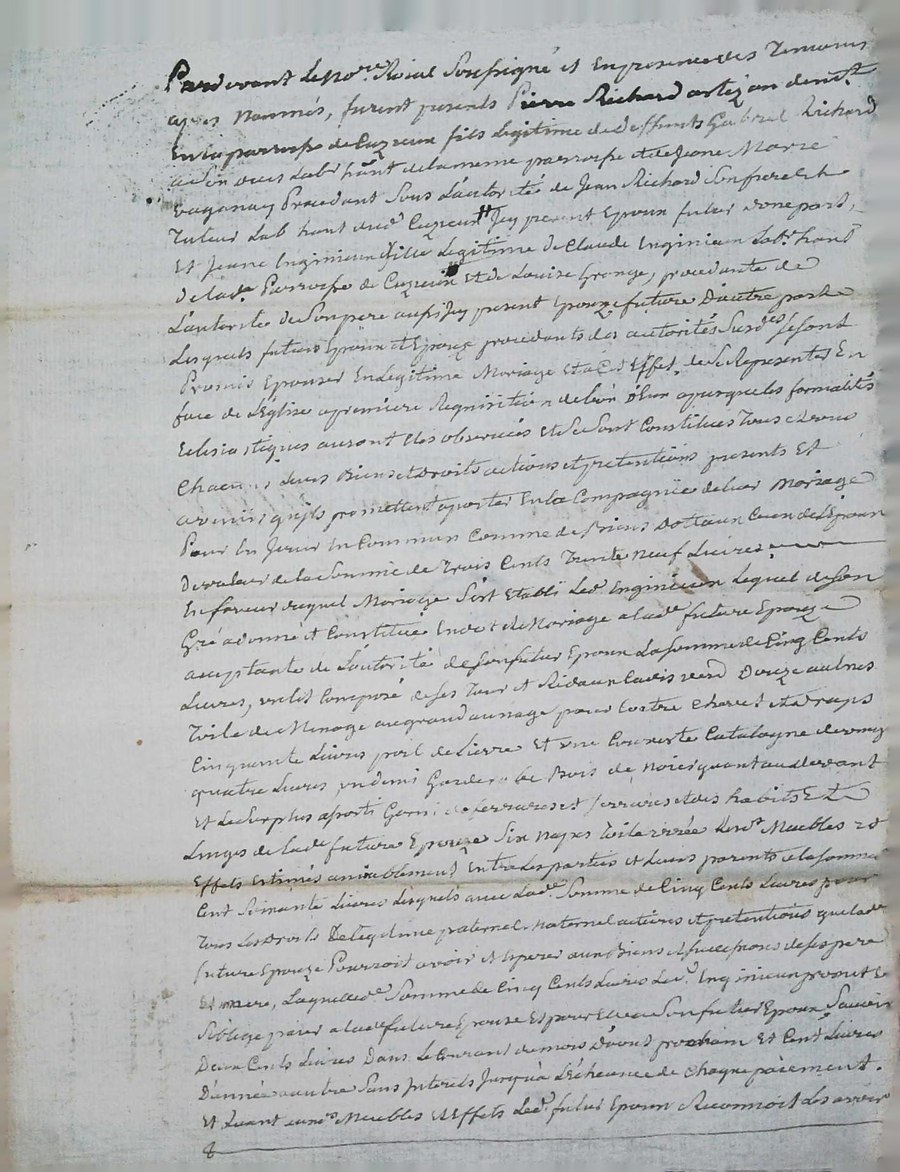 Pardevant le no.re Roial soussigné et en presence des temoins
apres nommés, furent presents Pierre Richard artizan demt.
en la parroisse de Cuzieux fils legitime de deffunts Gabriel Richard
a son vivt Labr. hant de la meme parroisse et de Jeane Marie
vaganay Procedant sous L'autorité de Jean Richard son frere et
Tuteur Lab hant aud. Cuzieux Icy present Epoux futur d'one part,
Et Jeane Inginieux fille Legitime de Claude Inginieux Labr. hant
de lade. Parroisse de Cuzieux Et de Louise Grange, procedante de
L'autorité de son pere aussy Icy present Epouze future D'autre part
Lesquels futurs Epoux et Epouze procedants des autorités susdes. se sont
Promis Epouser En Legitime Mariage Et a cet Effet de se Representer En
face de L'Eglise a premiere Requisition de l'un d'Eux apres que les formalités
Eclesiastiques auront Etés observées Et se sont Constitues tous
Chacuns leurs Biens et Droits actions et pretentions presents Et
avenirs qu'ils promettent aporter En la Compagnïe de leur Mariage
Pour En Jouir En Commun Comme de Biens Dotaux Ceux de l'Epoux
De valeur de la somme de trois Cents trente neuf Livres.
En faveur duquel Mariage s'est Etabli led. Inginieux Lequel de son
Gré a donné et Constitué En dot de Mariage a lade. future Epouze
acceptante de L'autorité de son futur Epoux La somme de Cinq Cents
Livres, un lit Composé de ses tour et Rideaux Cadis verd Douze aulnes
Toile de Menage au grand aunage pour
Cinquante Livres poil de Lievre Et une Couverte Catalogne
quatre Livres un demi Garderobe Bois de Noier quant au devant
Et Le surplus a porti Garni de ferrures et serrures et des habits Et
Linges de lade. future Epouze Six Napes toile Lesds. Meubles et
Effets Estimés amiablement Entre les parties et leurs parents a la somme
Cent soixante Livres Lesquels avec lade. somme de Cinq Cents Livres pour
tous les Droits De legitime paternel maternel actions et pretentions que lade.
future Epouze Pourroit avoir et Esperer aux Biens et successions de ses pere
Et mere, Laquelle de. somme de Cinq Cents Livres Led. Inginieux promet Et
s'oblige paier a lade future Epouze Et pour Elle a son futur Epoux, sauoir
Deux Cents Livres Dans Le Courant du mois d'août prochain Et Cent Livres
D'année en autre sans Interets Jusqu'à L'écheance de Chaque paiement.
Et Quant auxds. Meubles et Effets Led. futur Epoux Reconnoit Les avoir